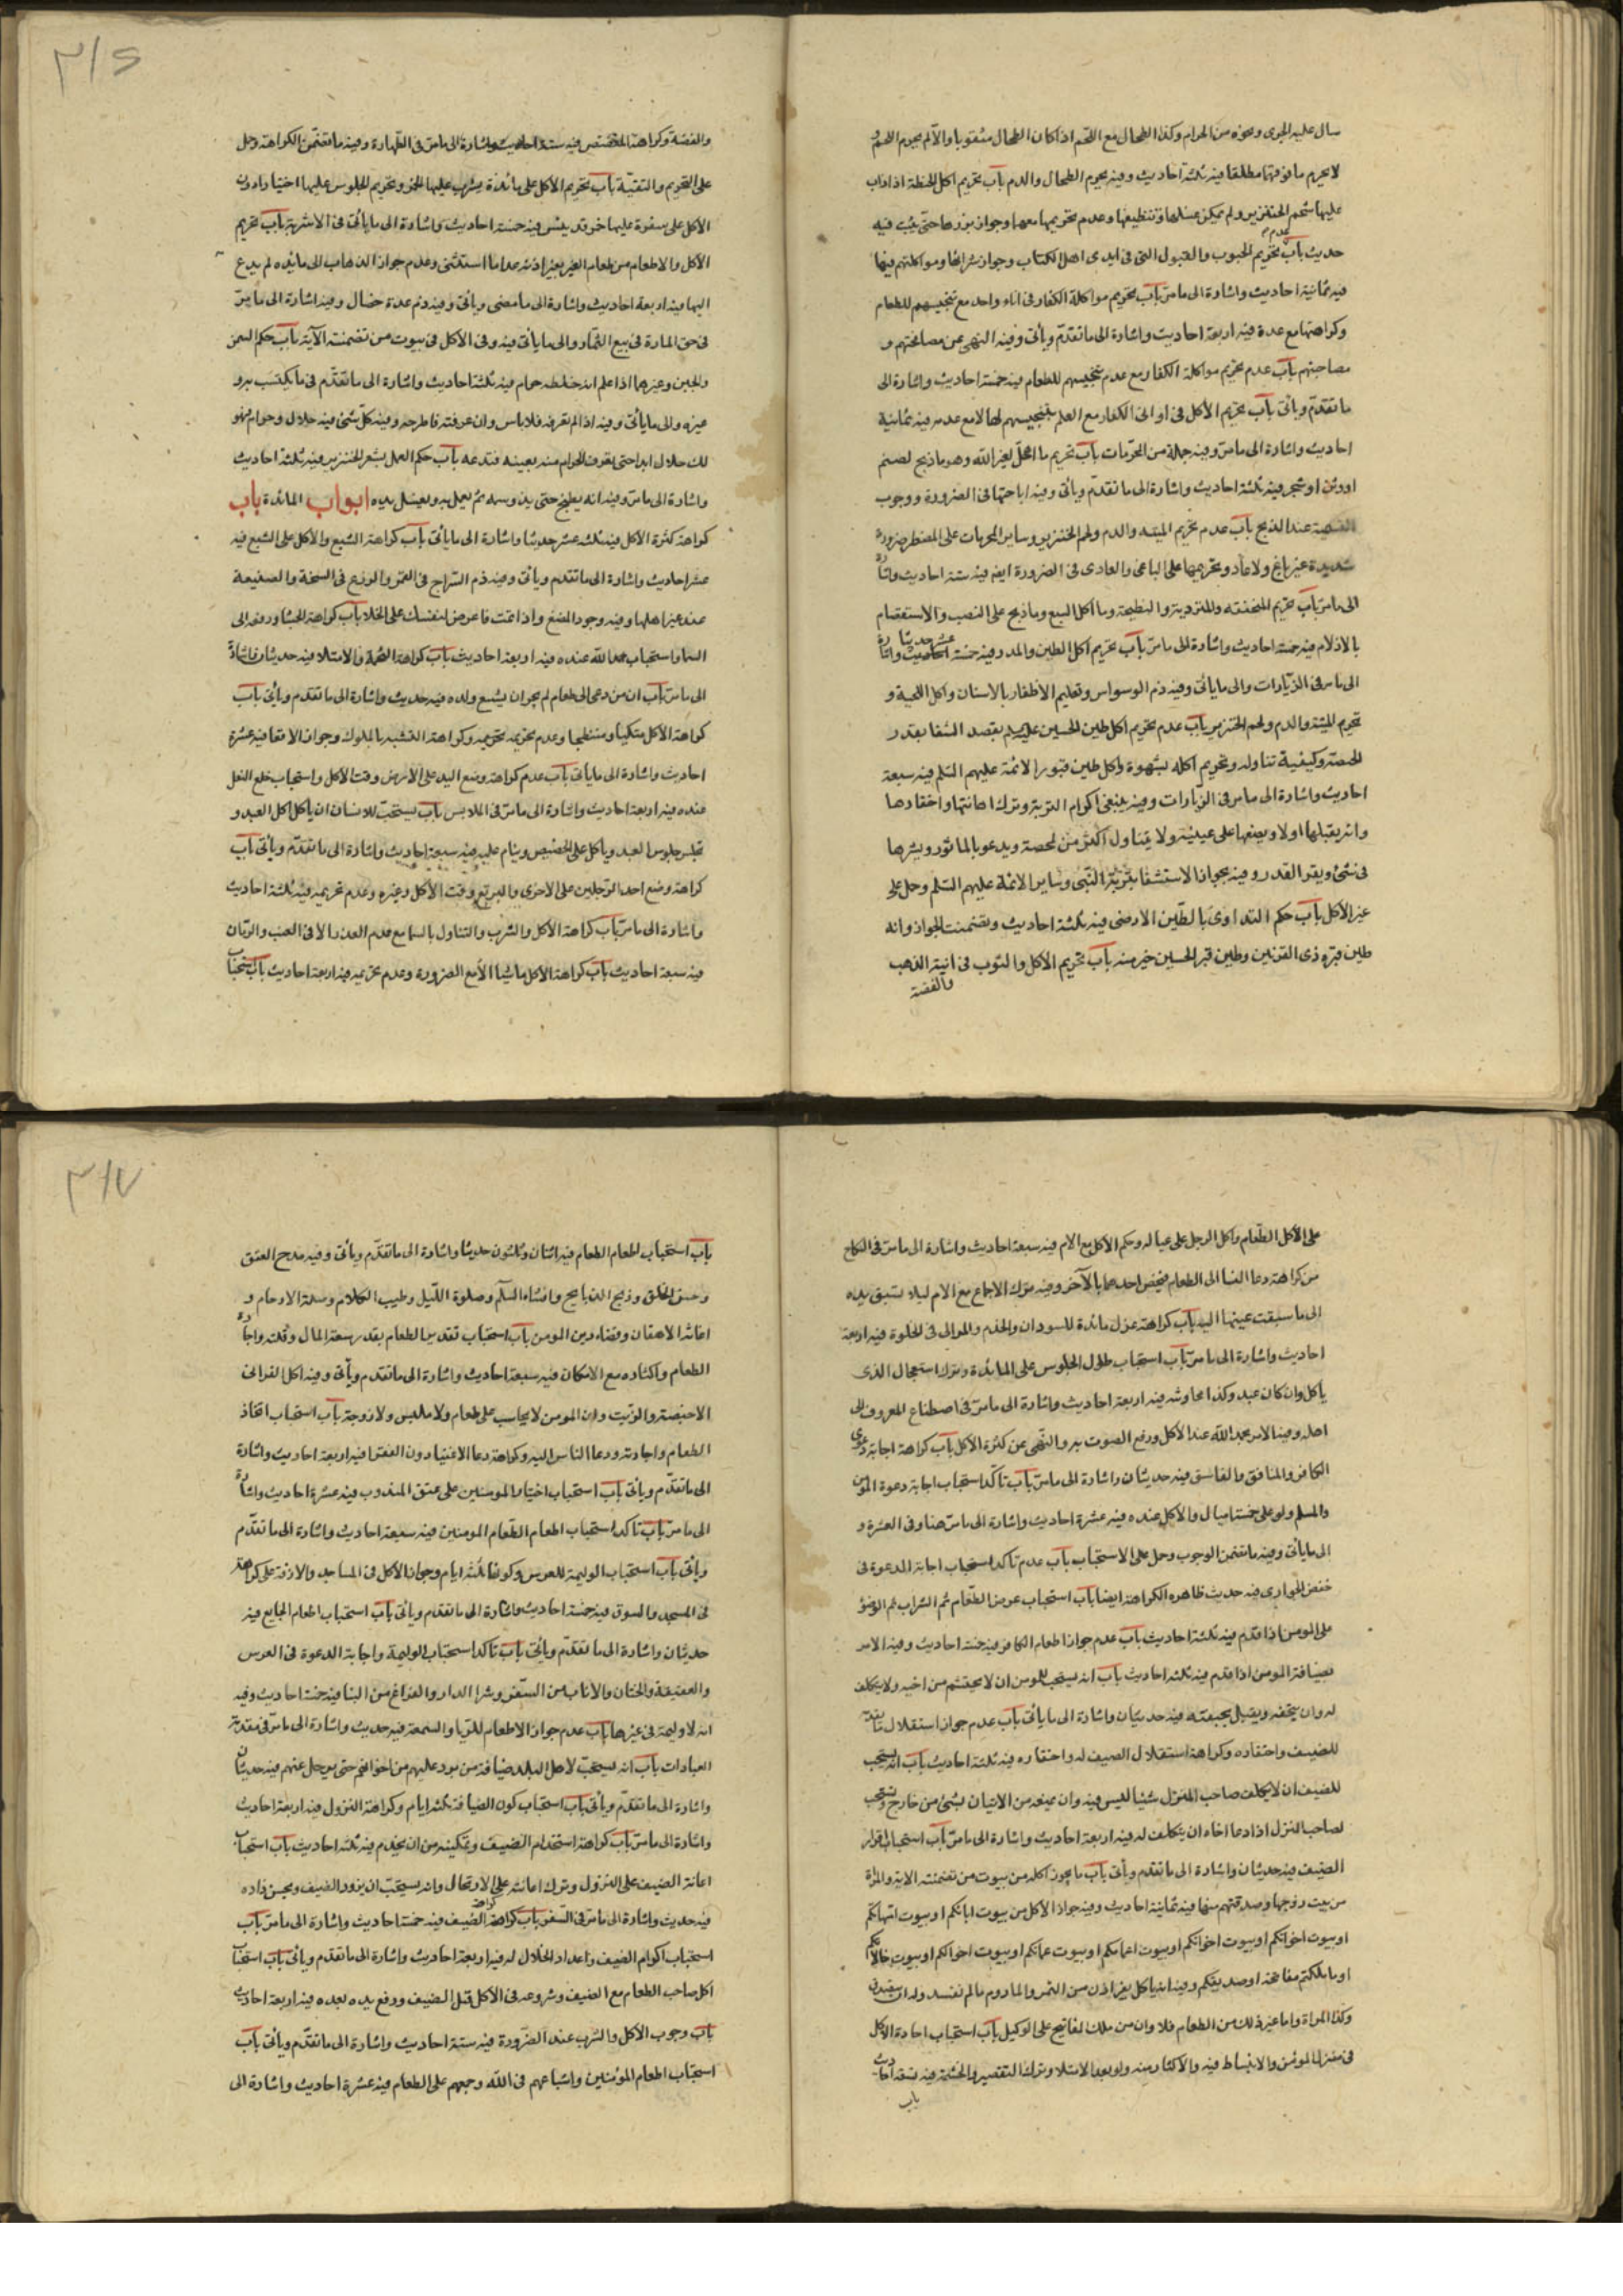 سال عليه الجرى ونحوه من الحرام وكذا الطحال مع اللحم اذا كان الطحال مثقوبا والا لم يحرم اللحم و
لا يحرم ما فوقها مطلقا فيه ثلثة احاديث وفيه يحرم الطحال والدم باب تحريم اكل الحنطة اذا ذاب
عليها شحم الخنزير ولم يمكن غسلها وتنظيفها وعدم تحريمها معها وجواز بذرها حتى ينبت فيه
حديث باب عدم تحريم الحبوب والبقول التى فى ايدى اهل الكتاب وجواز شرائها ومواكلتهم فيها
فيه ثمانية احاديث واشارة الى ما مر باب تحريم مواكلة الكفار فى اناء واحد مع تنجيسهم للطعام
وكراهتها مع عدمه فيه اربعة احاديث واشارة الى ما تقدّم ويأتى وفيه النهى عن مصافحتهم و
مصاحبتهم باب عدم تحريم مواكلة الكفار مع عدم تنجيسهم للطعام فيه خمسة احاديث واشارة الى
ما تقدّم ويأتى باب تحريم الأكل فى اوانى الكفار مع العلم بتنجيسهم لها لا مع عدمه فيه ثمانية
احاديث واشارة الى ما مرّ وفيه جملة من المحرّمات باب تحريم ما اهلّ لغير الله وهو ما ذبح لصنم
او وثن او شجر فيه ثلثة احاديث واشارة الى ما تقدّم ويأتى وفيه اباحتها فى الضرورة ووجوب
التسمية عند الذبح باب عدم تحريم الميتة والدم ولحم الخنزير وساير المحرمات على المضطر ضرورة
شديدة غير باغ ولا عاد وتحريمها على الباغى والعادى فى الضرورة ايضا فيه ستة احاديث واشارة
الى ما مرّ باب تحريم المنخنقة والمتردية والنطيحة وما اكل السبع وما ذبح على النصب والاستقسام
بالازلام فيه خمسة احاديث واشارة الى ما مرّ باب تحريم اكل الطين والمدر وفيه خمسة عشر حديثا واشارة
الى ما مر فى الزّيارات والى ما يأتى وفيه ذم الوسواس وتقليم الأظفار بالاسنان واكل اللحية و
تحريم الميتة والدم ولحم الخنزير باب عدم تحريم اكل طين الحسين عليه السلام بقصد الشفا بقدر
الحمصة وكيفية تناوله وتحريم اكله بشهوة واكل طين قبور الائمة عليهم السّلم فيه سبعة
احاديث واشارة الى ما مر فى الزّيارات وفيه ينبغى اكرام التربة وترك اهانتها واحتقارها
وانه يقبلها اولا ويضعها على عينيه ولا يتناول اكثر من الحمصة ويدعو بالماثور ويشربها
فى شئ ويقرأ القدر وفيه يجوز الاستشفا بتربة النّبى وساير الائمة عليهم السّلم وحمل على
غير الأكل باب حكم التداوى بالطّين الارمنى فيه ثلثة احاديث وتضمنت الجواز وانه
طين قبر ذى القرنين وطين قبر الحسين خير منه باب تحريم الأكل والشرب فى انية الذهب
والفضة
٣١٥
والفضة وكراهة المفضض فيه ستة احاديث واشارة الى ما مرّ فى الطّهارة وفيه ما تضمّن الكراهة وحمل
على التحريم والتقيّة باب تحريم الأكل على مائدة يشرب عليها الخمر وتحريم الجلوس عليها اختيارا دون
الأكل على سفرة عليها خبز قد يبس فيه خمسة احاديث واشارة الى ما يأتى فى الاشربة باب تحريم
الأكل والاطعام من طعام الغير بغير اذنه عدا ما استثنى وعدم جواز الذهاب الى مائدة لم يدع
اليها فيه اربعة احاديث واشارة الى ما مضى ويأتى وفيه ذم عدة خصال وفيه اشارة الى ما مرّ
فى حق المارة فى بيع الثّمار والى ما يأتى فيه وفى الأكل فى بيوت من تضمنته الآية باب حكم السمن
والجبن وغيرهما اذا علم انه خلطه حرام فيه ثلثة احاديث واشارة الى ما تقدّم فى ما يكتسب به و
غيره والى ما يأتى وفيه اذا لم تعرفه فلا باس وان عرفته فاطرحه وفيه كلّ شئ فيه حلال وحرام فهو
لك حلال ابدا حتى تعرف الحرام منه بعينه فتدعه باب حكم العمل بشعر الخنزير فيه ثلثة احاديث
واشارة الى ما مرّ وفيه انه يطبخ حتى يذهب دسمه ثم يعمل به ويغسل يديه ابواب المائدة باب
كراهة كثرة الأكل فيه ثلثة عشر حديثا واشارة الى ما يأتى باب كراهة الشبع والأكل على الشبع فيه
عشر احاديث واشارة الى ما تقدّم ويأتى وفيه ذم السّراج فى القمر والزرع فى السبخة والصنيعة
عند غير اهلها وفيه وجود المضغ واذا تمت فاعرض لنفسك على الخلا باب كراهة الجشا ورفعه الى
السما واستحباب حمد الله عنده فيه اربعة احاديث باب كراهة التخمة والامتلا فيه حديثان واشارة
الى ما مرّ باب ان من دعى الى طعام لم يجز ان يتبع ولده فيه حديث واشارة الى ما تقدم ويأتى باب
كراهة الأكل متكئا ومنبطحا وعدم تحريمه وكراهة التشبه بالملوك وجواز الاقعا فيه عشرة
احاديث واشارة الى ما يأتى باب عدم كراهة وضع اليد على الأرض وقت الأكل واستحباب خلع النعل
عنده فيه اربعة احاديث واشارة الى ما مرّ فى الملابس باب يستحبّ للانسان ان ياكل اكل العبد و
يجلس جلوس العبد وياكل على الحضيض وينام عليه فيه سبعة احاديث واشارة الى ما تقدّم ويأتى باب
كراهة وضع احد الرّجلين على الاخرى والتربع وقت الأكل وغيره وعدم تحريمه فيه ثلثة احاديث
واشارة الى ما مرّ باب كراهة الأكل والشرب والتناول بالشمال مع عدم العذر الا فى العنب والرمّان
فيه سبعة احاديث باب كراهة الأكل ماشيا الّا مع الضرورة وعدم تحريمه فيه اربعة احاديث باب استحباب
على الأكل الطّعام واكل الرجل على عياله وحكم الأكل مع الام فيه سبعة احاديث واشارة الى ما مرّ فى النكاح
من كراهة دعا النسا الى الطعام فيخص احدهما بالآخر وفيه ترك الاجماع مع الام ليلا تسبق يده
الى ما سبقت عينها اليه باب كراهة عزل مائدة للسودان والخدم والموالى فى الخلوة فيه اربعة
احاديث واشارة الى ما مرّ باب استحباب طول الجلوس على المائدة وترك استعجال الذى
يأكل وان كان عبد وكذا محاوثته فيه اربعة احاديث واشارة الى ما مرّ فى اصطناع المعروف الى
اهله وفيه الامر بحمد الله عند الأكل ورفع الصوت به والنّهى عن كثرة الأكل باب كراهة اجابة دعوى
الكافر والمنافق والفاسق فيه حديثان واشارة الى ما مرّ باب تأكّد استحباب اجابة دعوة المؤمن
والمسلم ولو على خمسة اميال والأكل عنده فيه عشرة احاديث واشارة الى ما مرّ هنا وفى العشرة و
الى ما يأتى وفيه ما تضمن الوجوب وحمل على الاستحباب باب عدم تأكد استحباب اجابة الدعوة فى
خفض الجوارى فيه حديث ظاهره الكراهة ايضا باب استحباب عرض الطّعام ثم الشراب ثم الوضؤ
على المومن اذا قدم فيه ثلثة احاديث باب عدم جواز اطعام الكافر فيه خمسة احاديث وفيه الامر
بضيافة المومن اذا قدم فيه ثلثة احاديث باب انه يستحب للمومن ان لا يحتشم من اخيه ولا يتكلف
له وان يتحفه ويقبل تحفته فيه حديثان واشارة الى ما يأتى باب عدم جواز استقلال ما يقدم
للضيف واحتقاره وكراهة استقلال الضيف له واحتقاره فيه ثلثة احاديث باب انه يستحب
للضيف ان لا يكلف صاحب المنزل شيئا ليس فيه وان يمنعه من الاتيان بشئ من خارج ويستحب
لصاحب المنزل اذا دعا اخاه ان يتكلف له فيه اربعة احاديث واشارة الى ما مرّ باب استحباب اقرار
الضيف فيه حديثان واشارة الى ما تقدم ويأتى باب ما يجوز اكله من بيوت من تضمنته الاية والمراة
من بيت زوجها وصدقتهم منها فيه ثمانية احاديث وفيه جواز الأكل من بيوت ابائكم او بيوت امهاتكم
او بيوت اخوانكم او بيوت اخواتكم او بيوت اعمامكم او بيوت عماتكم او بيوت اخوالكم او بيوت خالاتكم
او ما ملكتم مفاتحه او صديقكم وفيه انه ياكل بغير اذن من التمر والمادوم ما لم تفسد
وكذا المراة واما غير ذلك من الطعام فلا وان من ملك المفاتيح على الوكيل باب استحباب اجادة الأكل
فى منزل المؤمن والانبساط فيه والأكثار منه ولو بعد الامتلا وترك التقصير والحشمة فيه تسعة احاديث
باب
٣١٧
باب استحباب اطعام الطعام فيه اثنان وثلثون حديثا واشارة الى ما تقدّم ويأتى وفيه مدح العتق
وحسن الخلق وذبح الذبايح وافشاء السلم وصلوة اللّيل وطيب الكلام وصلة الارحام و
اغاثة الاهفان وقضاء دين المومن باب استحباب تقدير الطعام بقدر سعة المال وقلته واجادة
الطعام واكثاره مع الامكان فيه سبعة احاديث واشارة الى ما تقدم ويأتى وفيه اكل الفرانى
الاخبصة والزيت وان المومن لا يحاسب على طعام ولا ملبس ولا زوجة باب استحباب اتخاذ
الطعام واجادته ودعا الناس اليه وكراهة دعا الاغنيا دون الفقرا فيه اربعة احاديث واشارة
الى ما تقدّم ويأتى باب استحباب اختيار المومنين على عتق المندوب فيه عشرة احاديث واشارة
الى ما مرّ باب تأكد استحباب اطعام الطّعام المومنين فيه سبعة احاديث واشارة الى ما تقدّم
ويأتى باب استحباب الوليمة للعرس وكونها ثلثة ايام وجواز الأكل فى المساجد والازقة على كراهة
فى المسجد والسوق فيه خمسة احاديث واشارة الى ما تقدم ويأتى باب استحباب اطعام الجايع فيه
حديثان واشارة الى ما تقدّم ويأتى باب تأكد استحباب الوليمة واجابة الدعوة فى العرس
والعقيقة والختان والاياب من السّفر وشرا الدار والفراغ من البنا فيه خمسة احاديث وفيه
انه لا وليمة فى غيرها باب عدم جواز الاطعام للرّيا والسمعة فيه حديث واشارة الى ما مرّ فى مقدمة
العبادات باب انه يستحبّ لاهل البلد ضيافة من يرد عليهم من اخوانهم حتى يرحل عنهم فيه حديثان
واشارة الى ما تقدّم ويأتى باب استحباب كون الضيافة ثلثة ايام وكراهة النزول فيه اربعة احاديث
واشارة الى ما مرّ باب كراهة استخدام الضيف وتمكينه من ان يخدم فيه ثلثة احاديث باب استحباب
اعانة الضيف على النزول وترك اعانته على الارتحال وانه يستحبّ ان يزود الضيف ويحسن زاده
فيه حديث واشارة الى ما مرّ فى السّفر باب كراهة كراهة الضيف فيه خمسة احاديث واشارة الى ما مرّ باب
استحباب اكرام الضيف واعداد الخلال له فيه اربعة احاديث واشارة الى ما تقدم ويأتى باب استحباب
اكل صاحب الطعام مع الضيف وشروعه فى الأكل قبل الضيف ورفع يده بعده فيه اربعة احاديث
باب وجوب الأكل والشرب عند الضرورة فيه ستة احاديث واشارة الى ما تقدّم ويأتى باب
استحباب اطعام المؤمنين واشباعهم فى اللّه وجمعهم على الطعام فيه عشرة احاديث واشارة الى